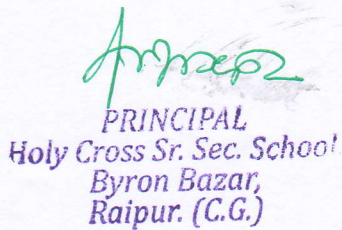 PRINCIPAL
Holy Cross Sr. Sec. School
Byron Bazar,
Raipur. (C.G.)